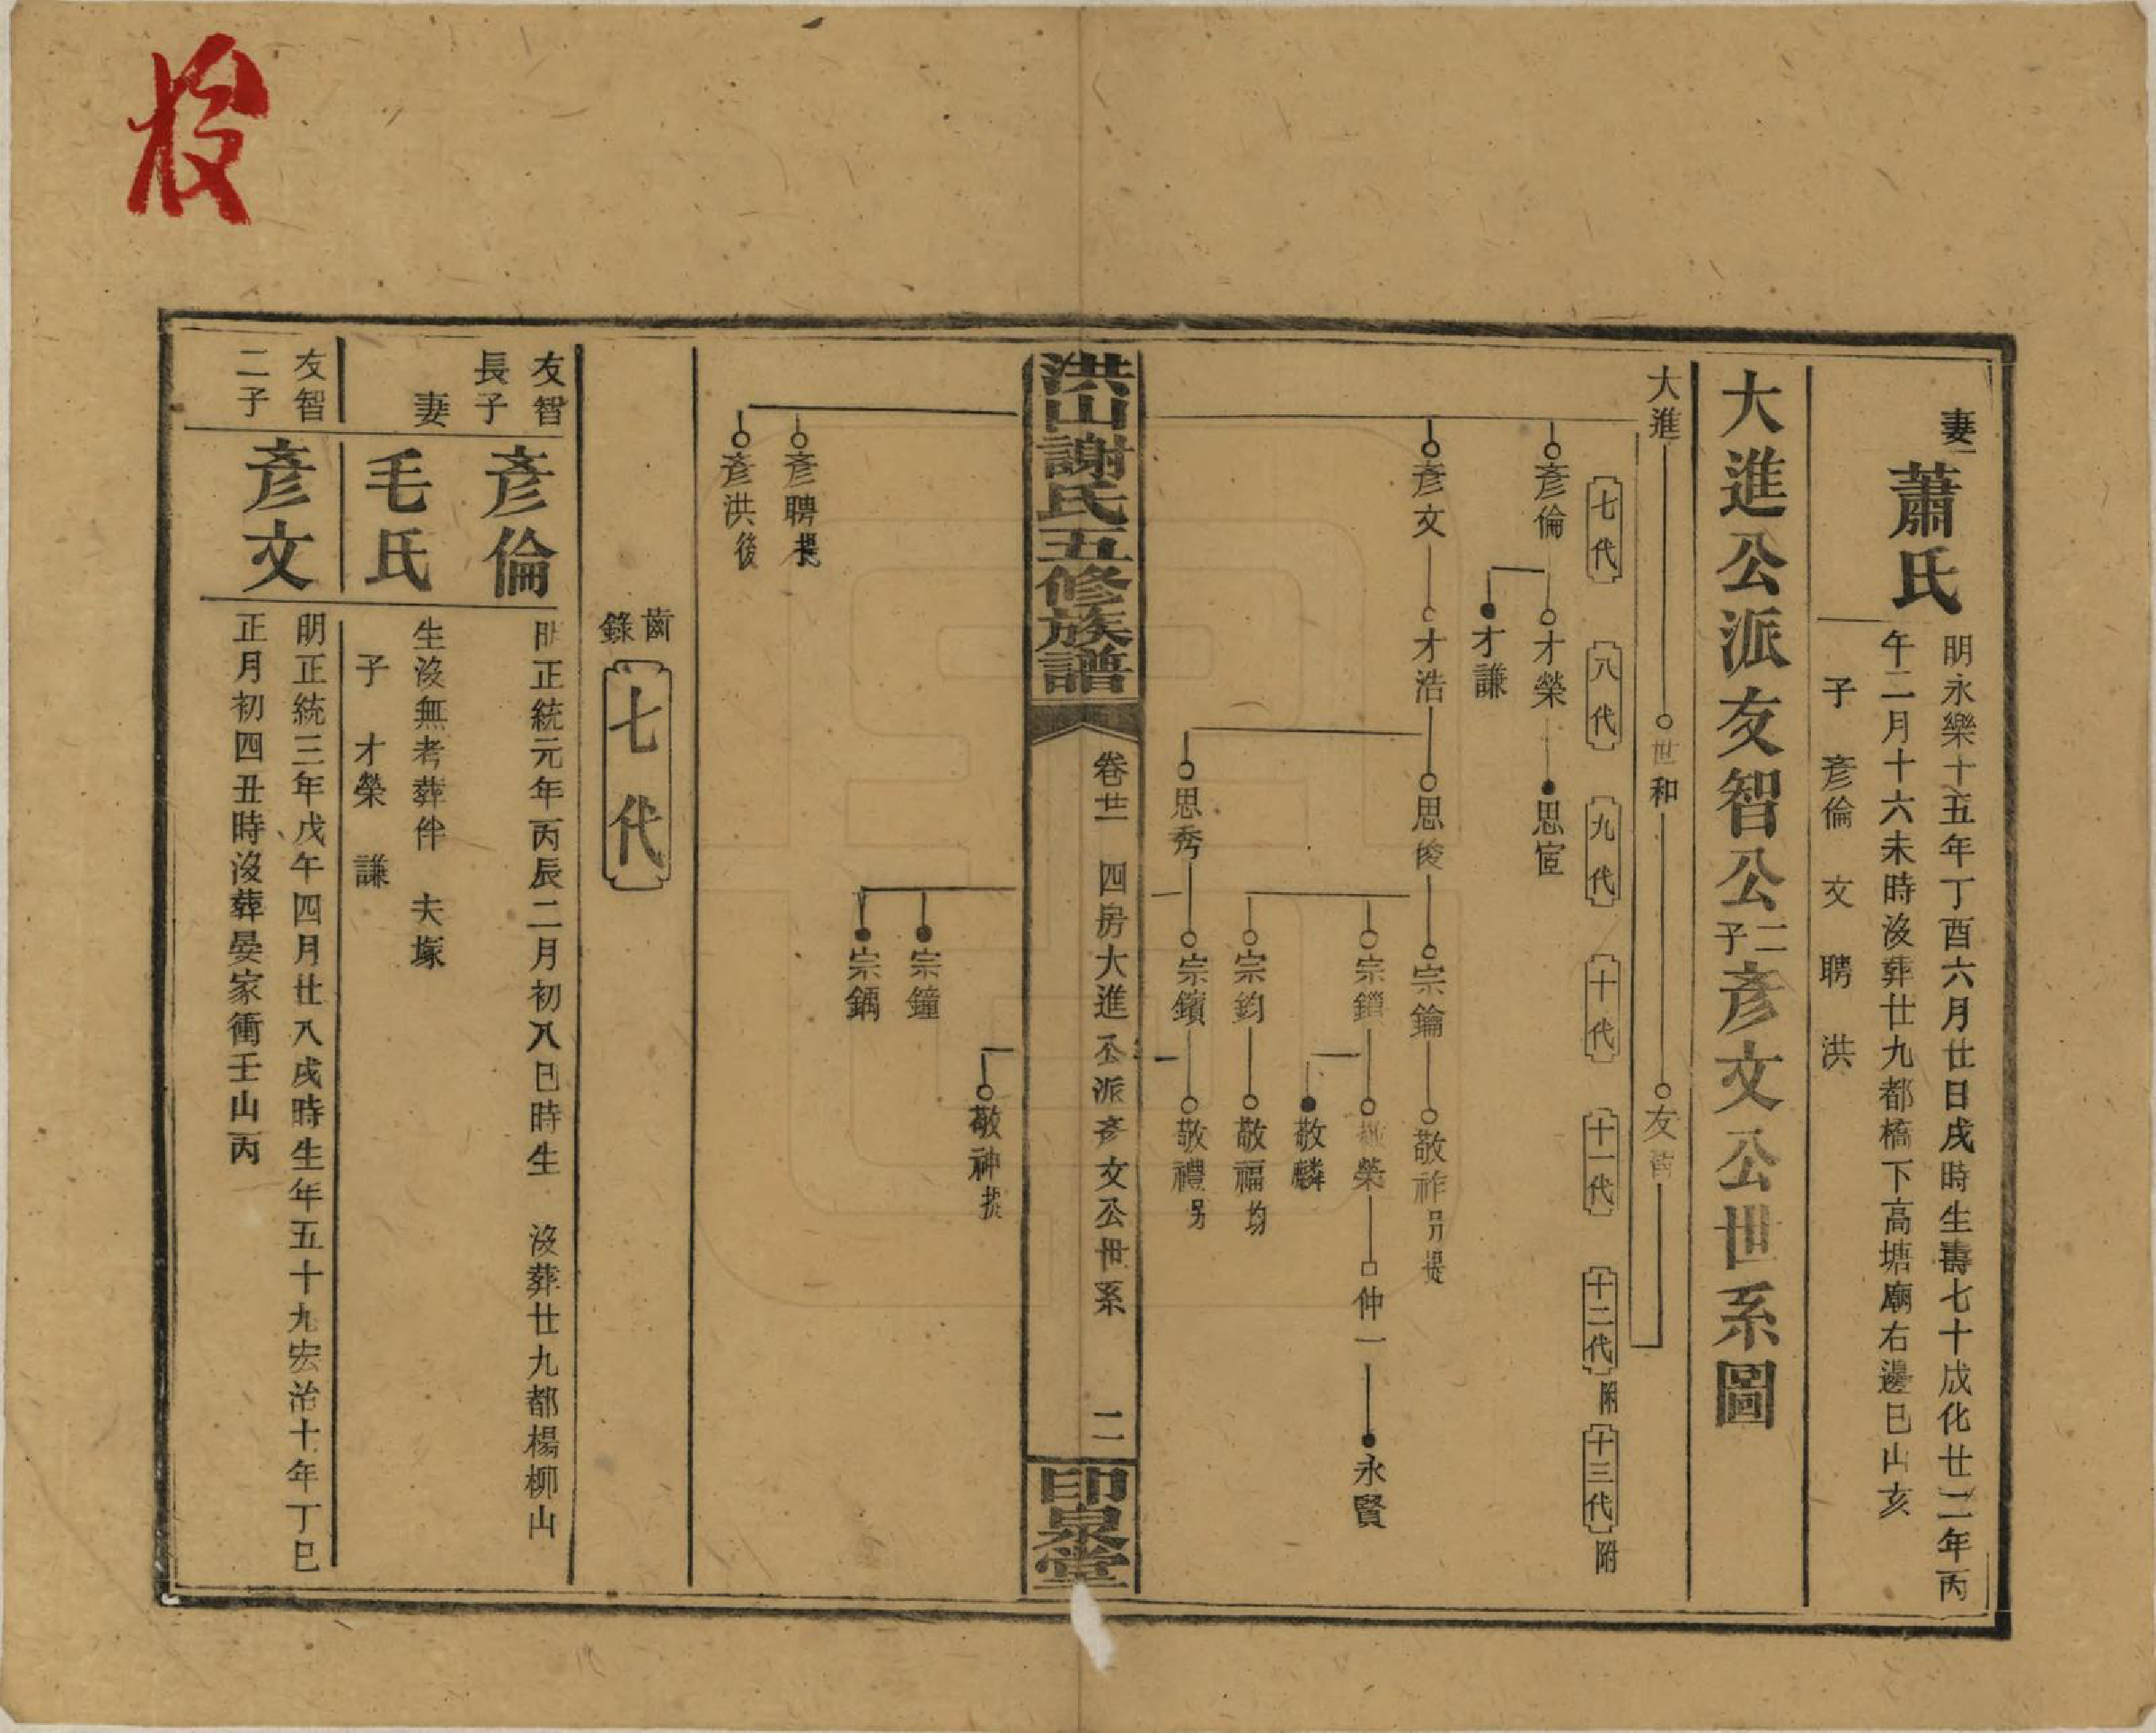 妻
蕭氏
明永樂十五年丁酉六月廿日戌時生壽七十成化廿二年丙
午二月十六未時沒葬廿九都橋下高塘廟右邊巳山亥
子 彥倫 文 聘 洪
大進公派友智公二子彥文公世系圖
大進
世和
友智
七代
八代
九代
十代
十一代
十二代附
十三代附
彥倫
才榮
思宦
才謙
彥文
才浩
思俊
宗鑰
敬祚另提
宗鎖
敬榮
仲一
永賢
敬麟
宗鈞
敬福均
思秀
宗鑌
敬禮另
洪山謝氏五修族譜
卷廿一 四房大進公派彥文公世系
二
印泉堂
敬神提
宗鐘
宗鎷
彥聘提
彥洪後
齒錄
七代
友智長子
彥倫
明正統元年丙辰二月初八巳時生 沒葬廿九都楊柳山
妻
毛氏
生沒無考葬伴 夫塚
子 才榮 謙
友智二子
彥文
明正統三年戊午四月廿八戌時生年五十九宏治十年丁巳
正月初四丑時沒葬晏家衝壬山丙